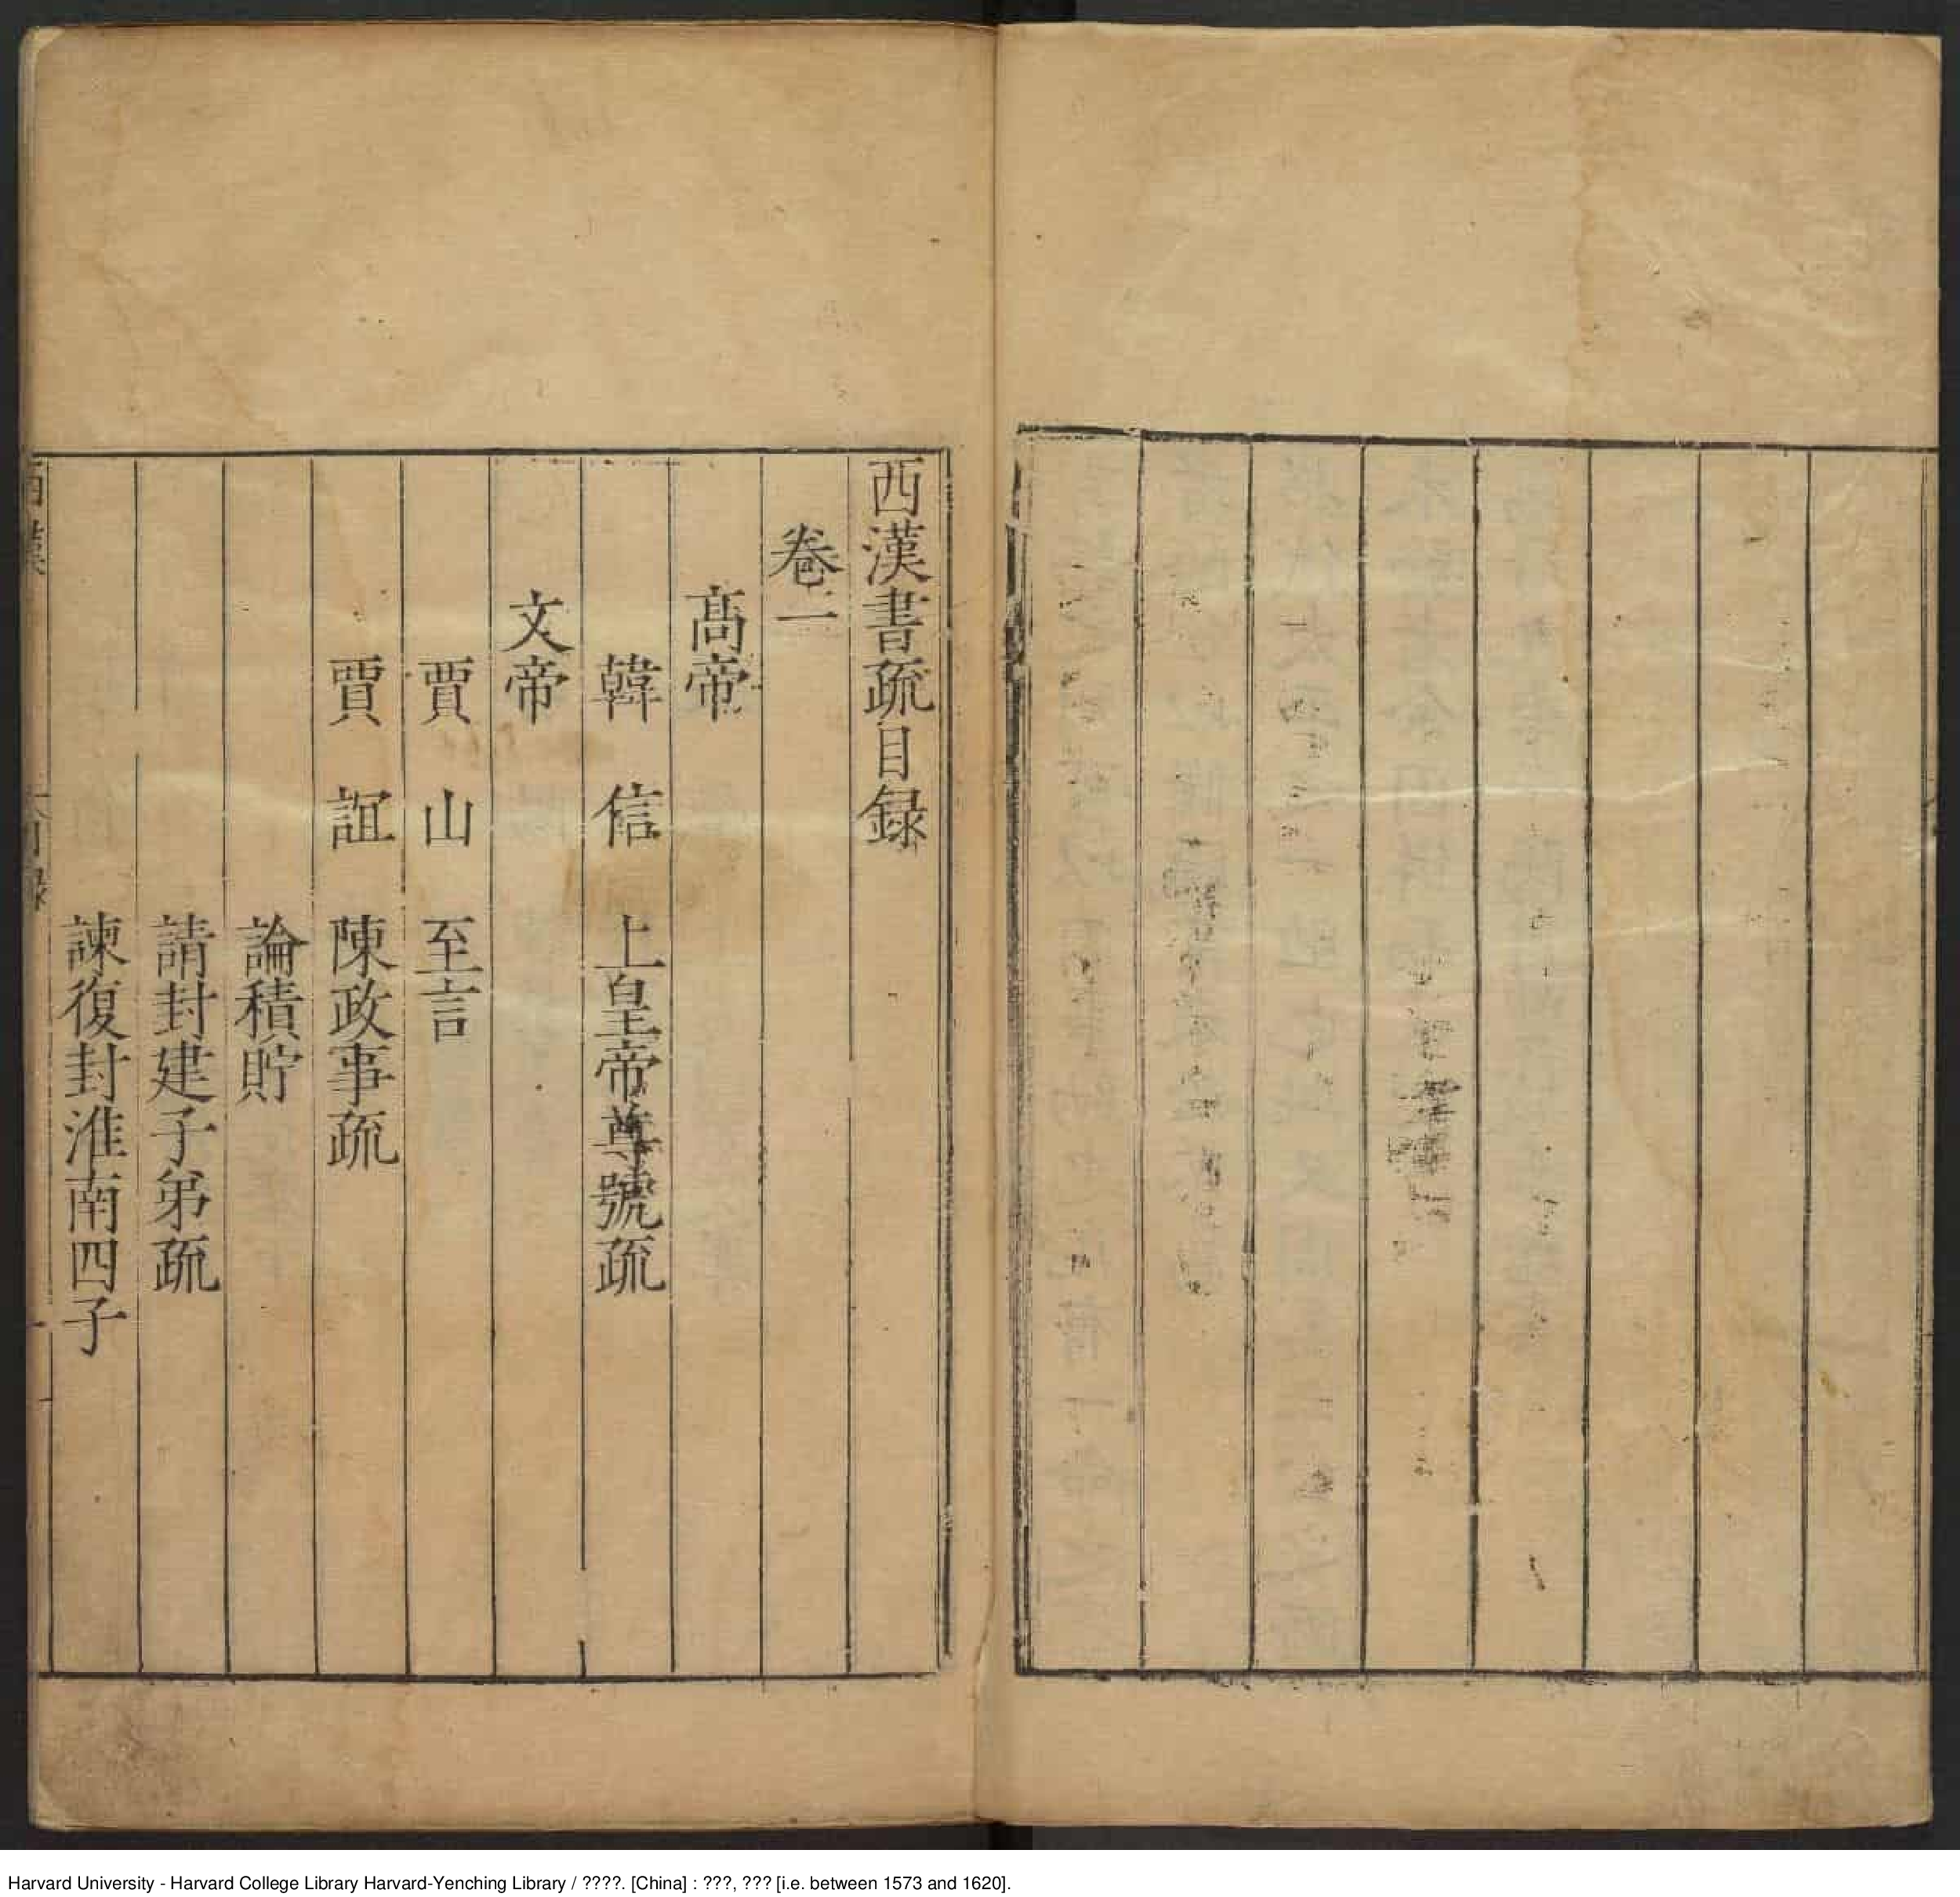 西漢書疏目録
卷一
髙帝
韓信 上皇帝尊號疏
文帝
賈山 至言
賈誼 陳政事疏
論積貯
請封建子弟疏
諫復封淮南四子
Harvard University - Harvard College Library Harvard-Yenching Library / ????. [China] : ???, ??? [i.e. between 1573 and 1620].